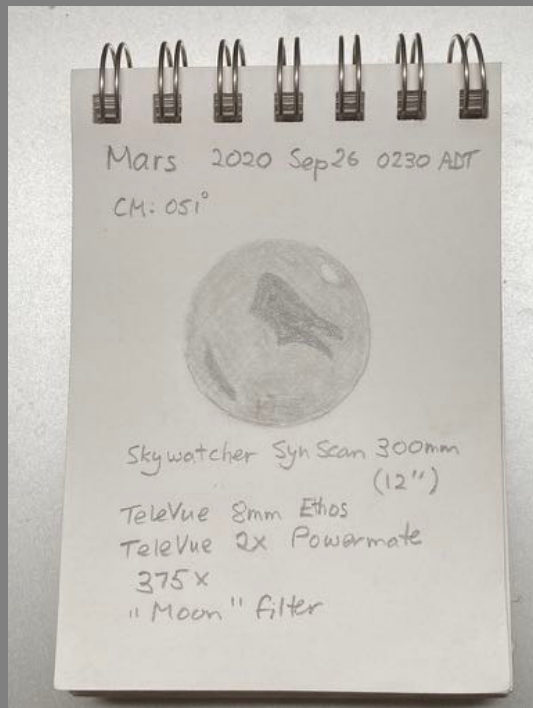 Mars 2020 Sep 26 0230 ADT
CM: 051°
Skywatcher SynScan 300mm
(12")
TeleVue 8mm Ethos
TeleVue 2x Powermate
375x
"Moon" filter